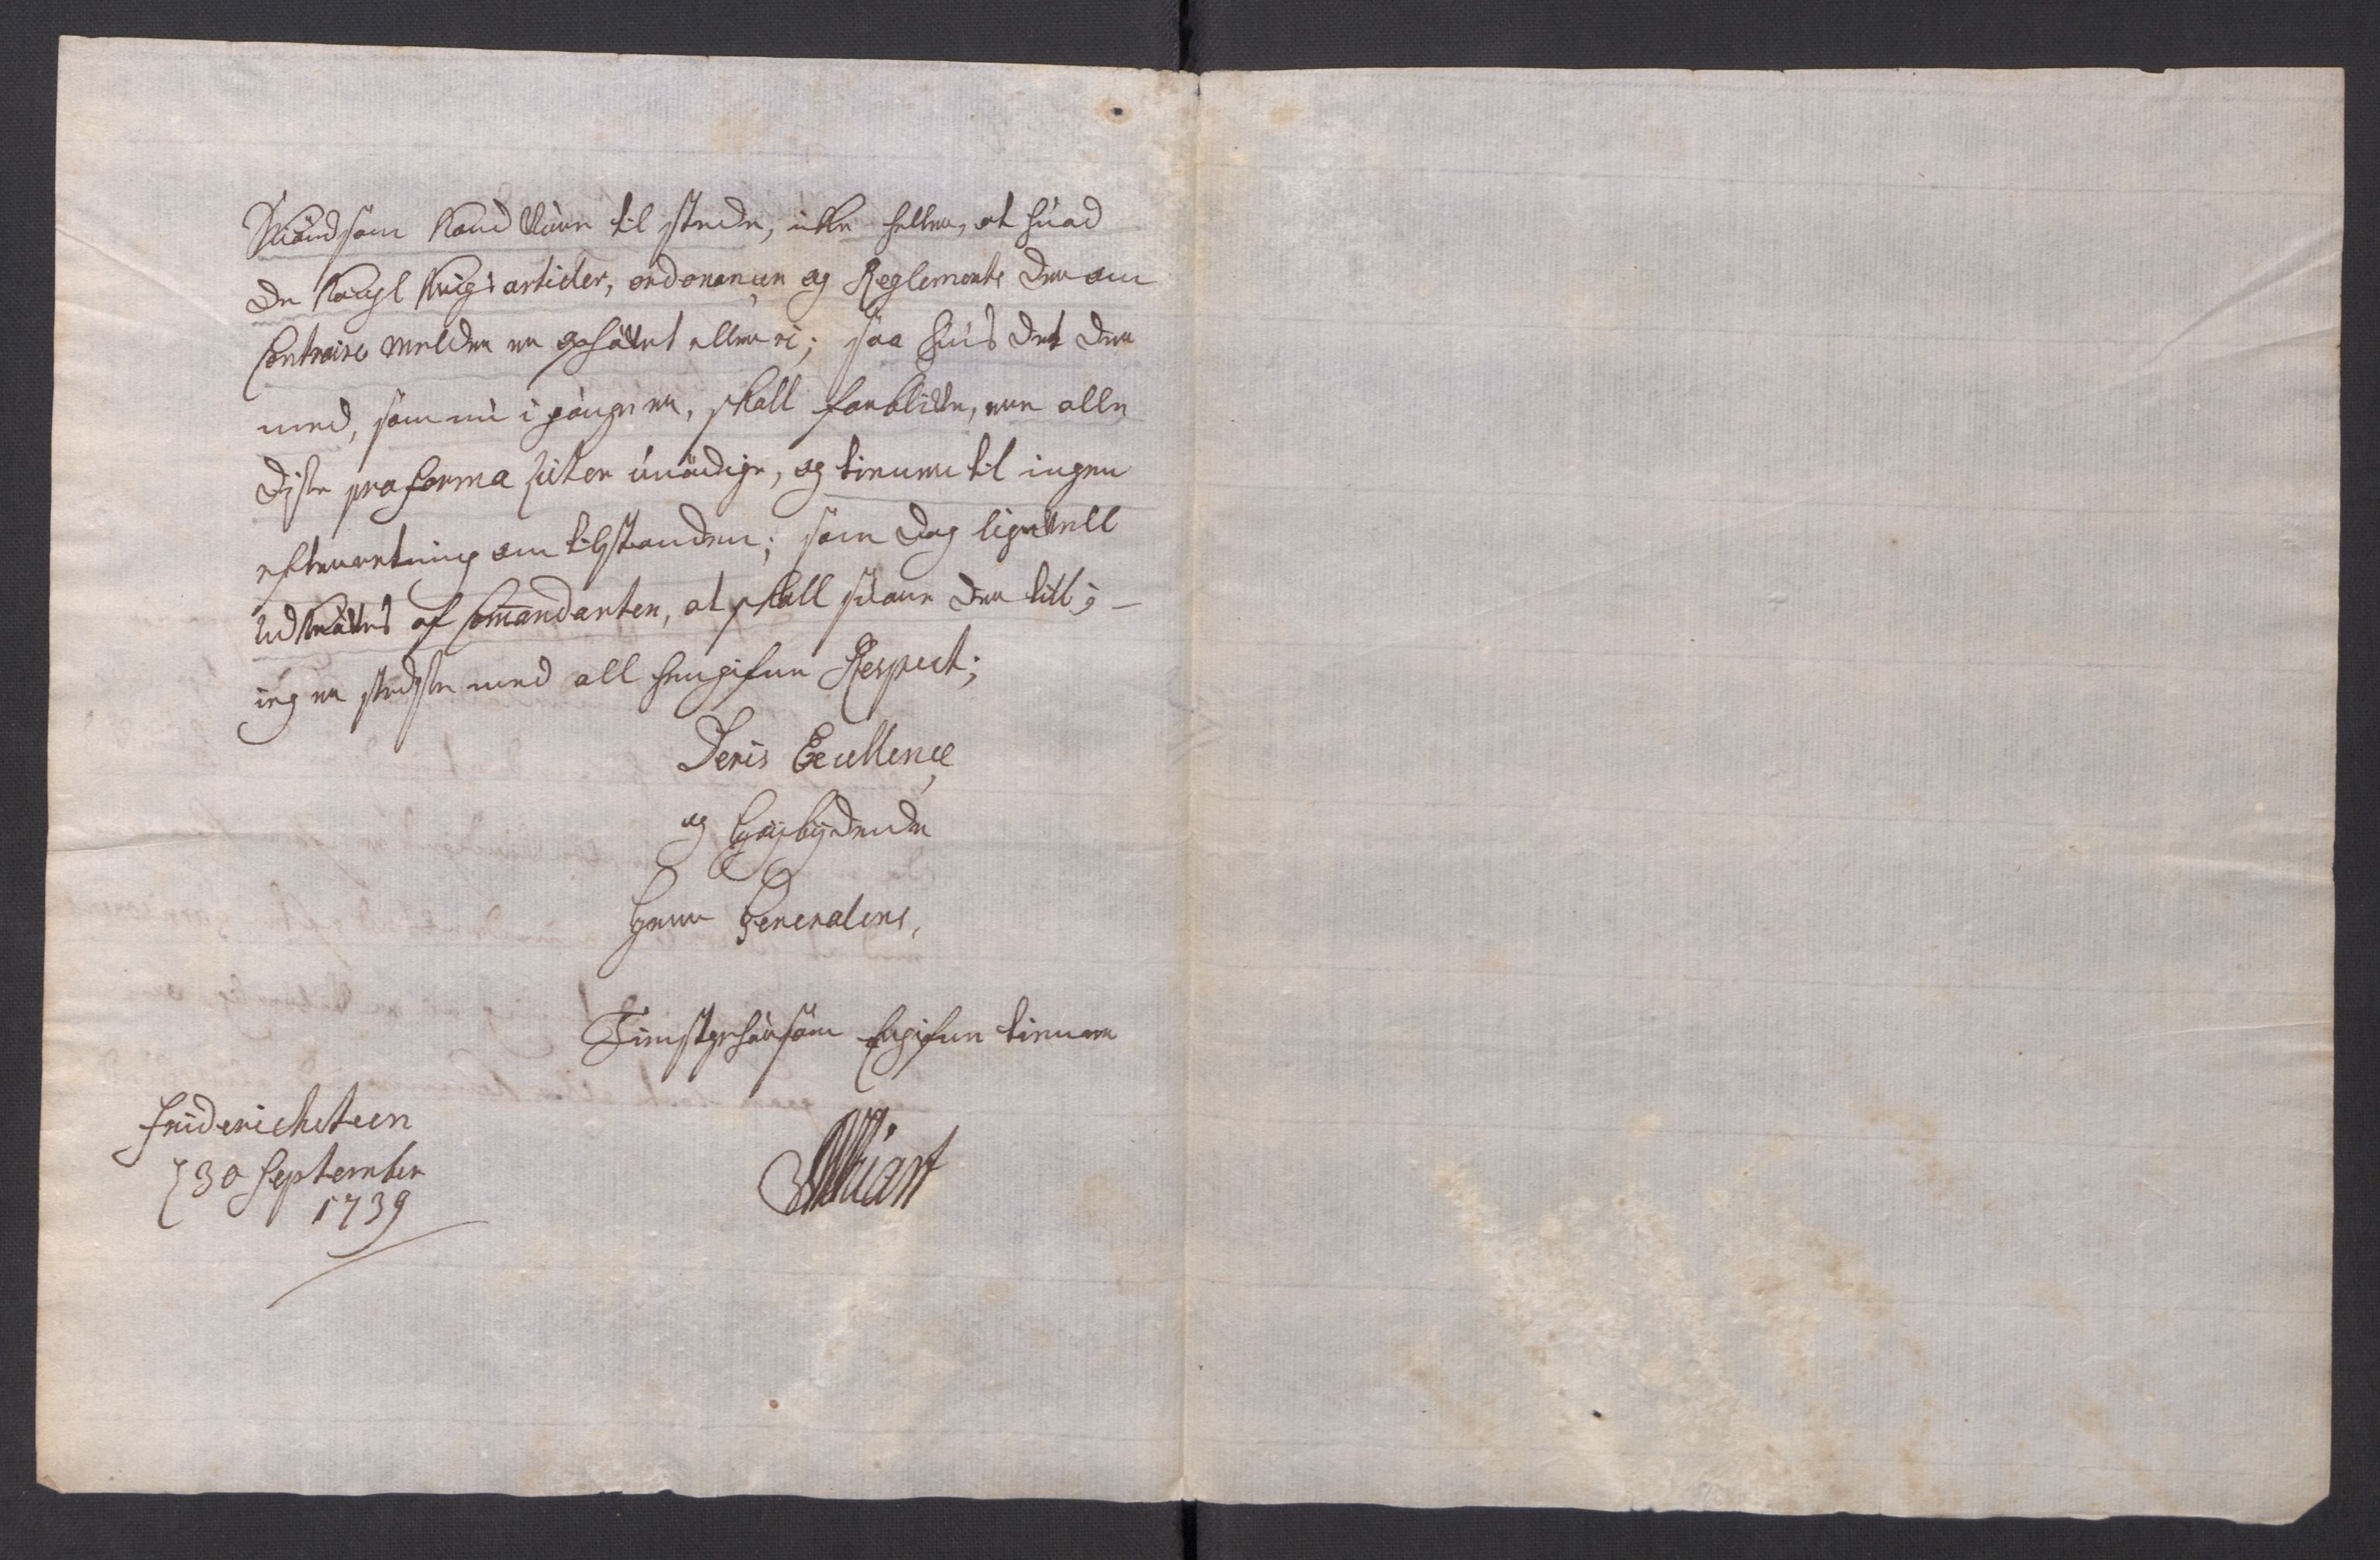 som kand være til stede, icke heller, at huad
de Kongl Krigs articler, ordonancen og Reglemente der om
Contraire melder er ophævet eller ei; saa huis det der
med, som nu i gange er, skall forblifve, ere alle
disse pro forma Lister unödige, og tiener til ingen
efterretning om tilstanden; som dog ligevell
udkræves af Comandanten, at skall svare der till; –
ieg er stedse med all hengifven Respect;
Deris Excellence
og Høybydende
Herr Generalens,
Tienstgehorsom hengifven tienner
Friderichsteen
d 30 September
1739